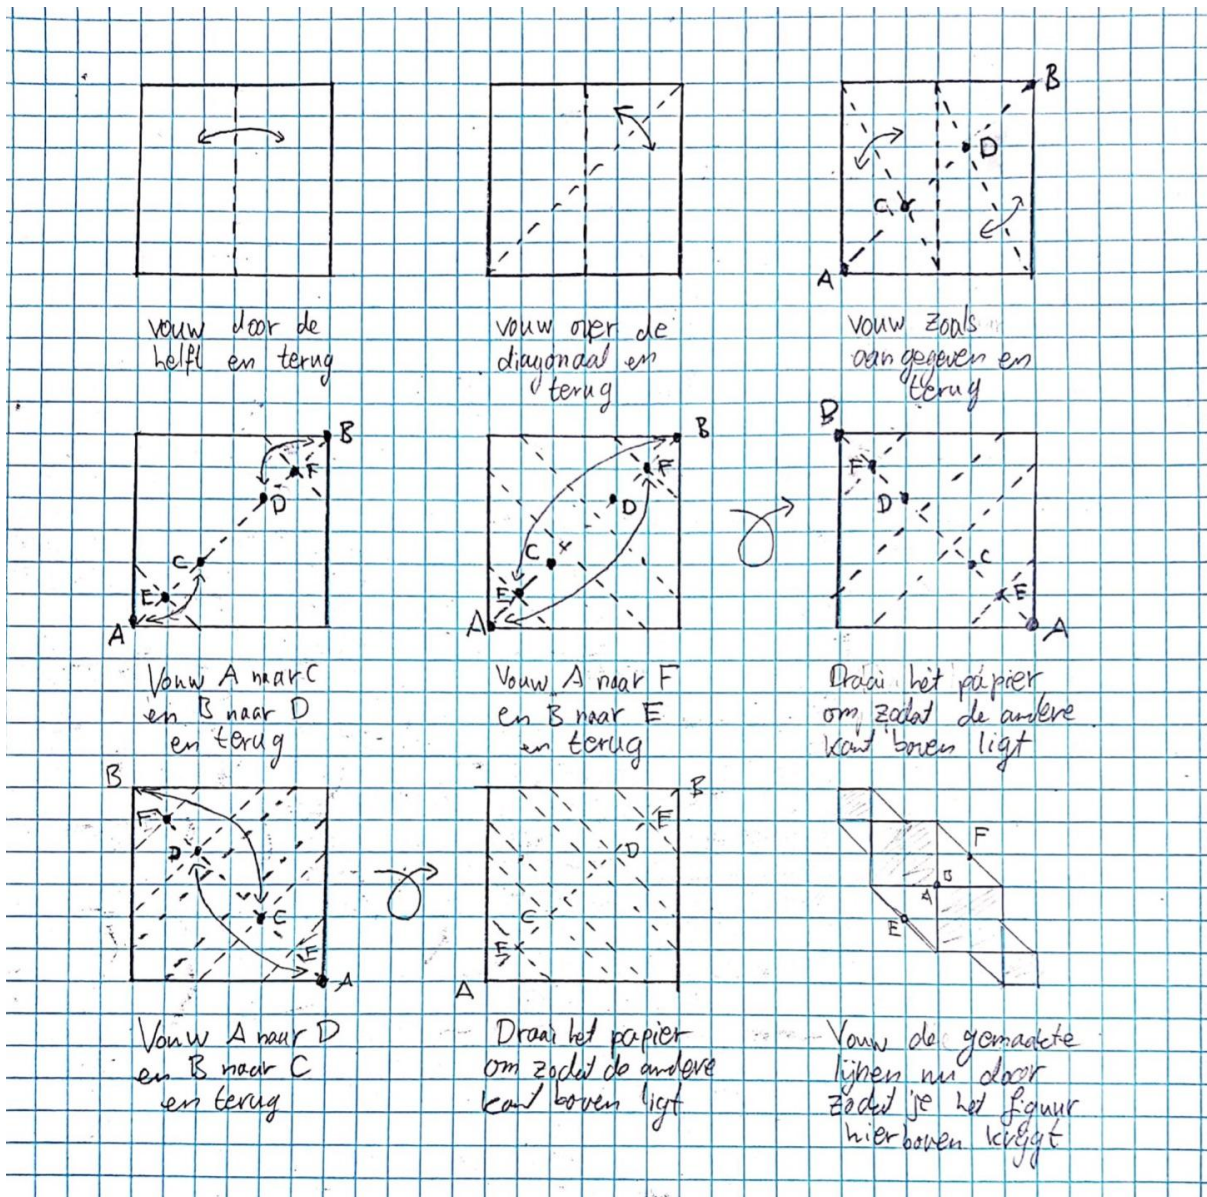 B
D
C
A
vouw door de
helft en terug
vouw over de
diagonaal en
terug
vouw zoals
aangegeven en
terug
B
F
D
C
E
A
B
F
D
C
E
A
B
F
D
C
E
A
Vouw A naar C
en B naar D
en terug
Vouw A naar F
en B naar E
en terug
Draai het papier
om zodat de andere
kant boven ligt
B
F
D
C
E
A
B
E
D
C
E
A
F
B
A
E
Vouw A naar D
en B naar C
en terug
Draai het papier
om zodat de andere
kant boven ligt
Vouw de gemaakte
lijnen nu door
zodat je het figuur
hierboven krijgt